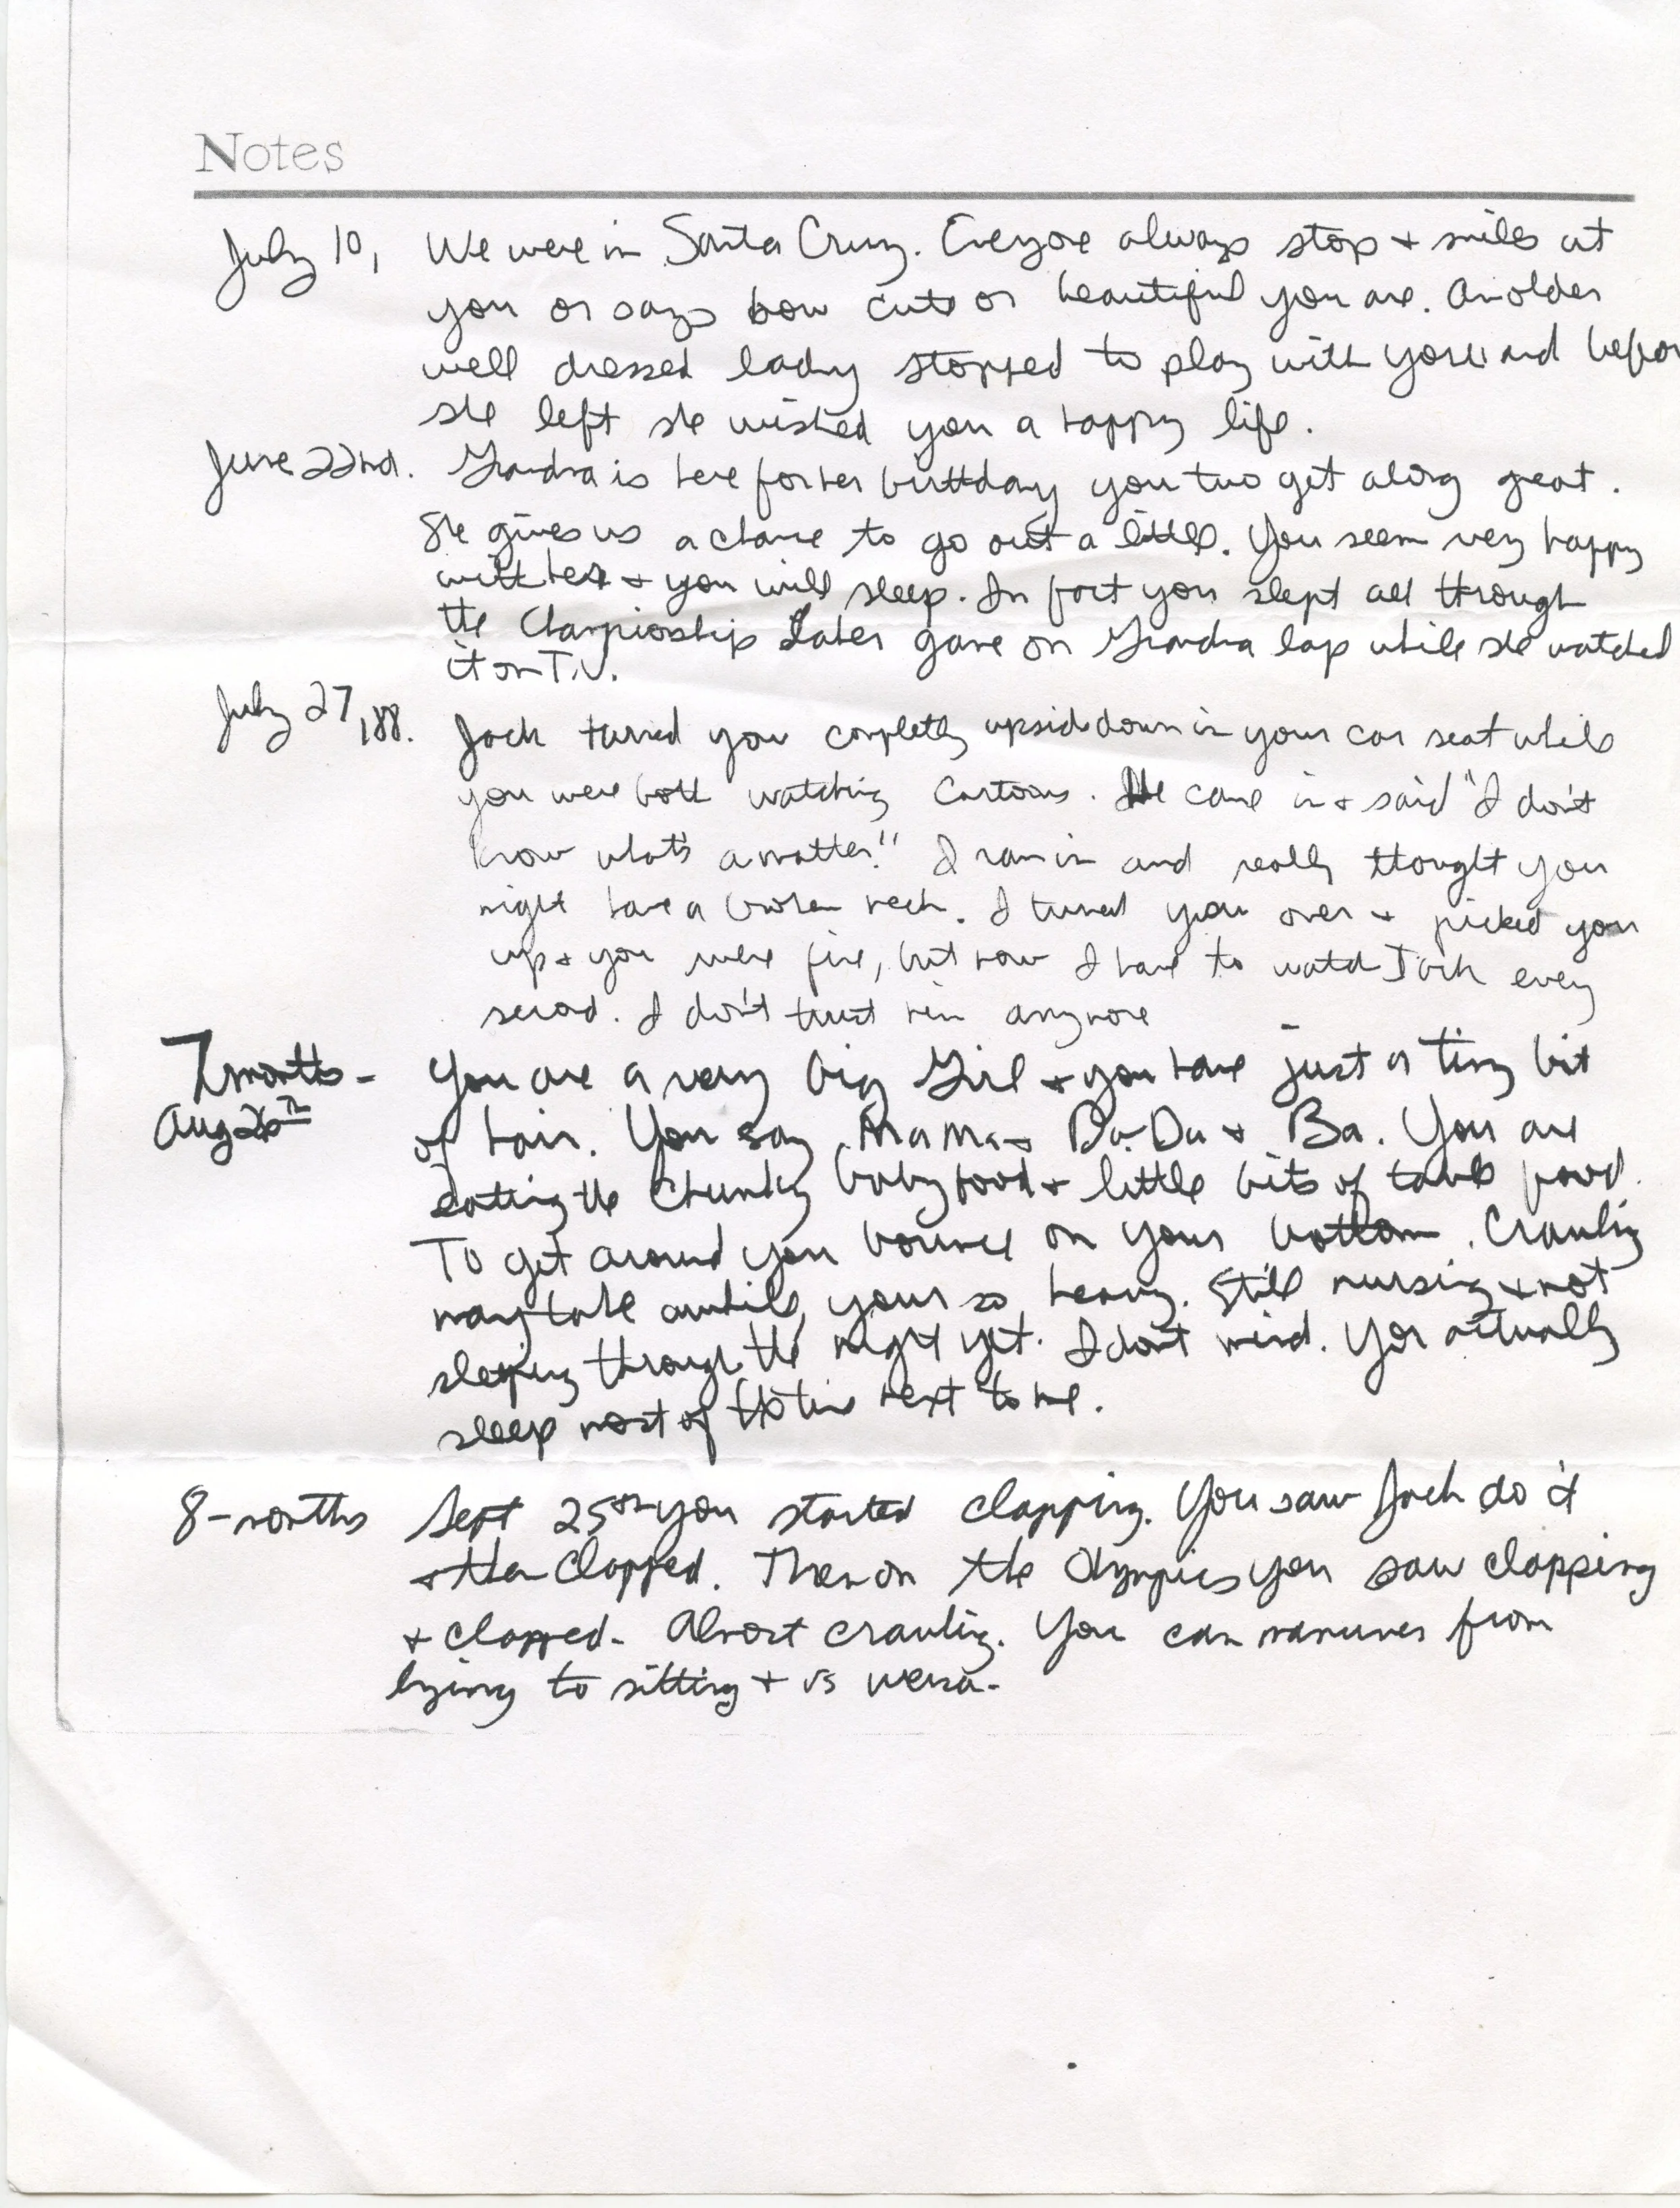 Notes
July 10, We were in Santa Cruz. Everyone always stop + smiles at
you or says how cute or beautiful you are. An older
well dressed lady stopped to play with you and befor
she left she wished you a happy life.
June 22nd. Grandma is here for her birthday you two get along great.
She gives us a chance to go out a little. You seem very happy
with her + you will sleep. In fact you slept all through
the Championship Laker game on Grandma lap while she watched
it on T.V.
July 27, 88. Jack turned you completly upside down in your car seat while
you were both watching Cartoons. He came in + said "I don't
know what's a matter!" I ran in and really thought you
might have a broken neck. I turned you over + picked you
up + you were fine, but now I have to watch Jack every
second. I don't trust him anymore
7 months - You are a very big Girl + you have just a tiny bit
Aug 26th of hair. You say MaMa + Da-Da + Ba. You are
eating the Chunky baby food + little bits of table food.
To get around you bounce on your bottom. Crawling
may take awhile, your so heavy. Still nursing + not
sleeping through the night yet. I don't mind. You actually
sleep most of the time next to me.
8-months Sept 25th you started clapping. You saw Jack do it
+ then Clapped. Then on the Olympics you saw clapping
+ clapped. Almost crawling. You can manuver from
lying to sitting + vs versa.